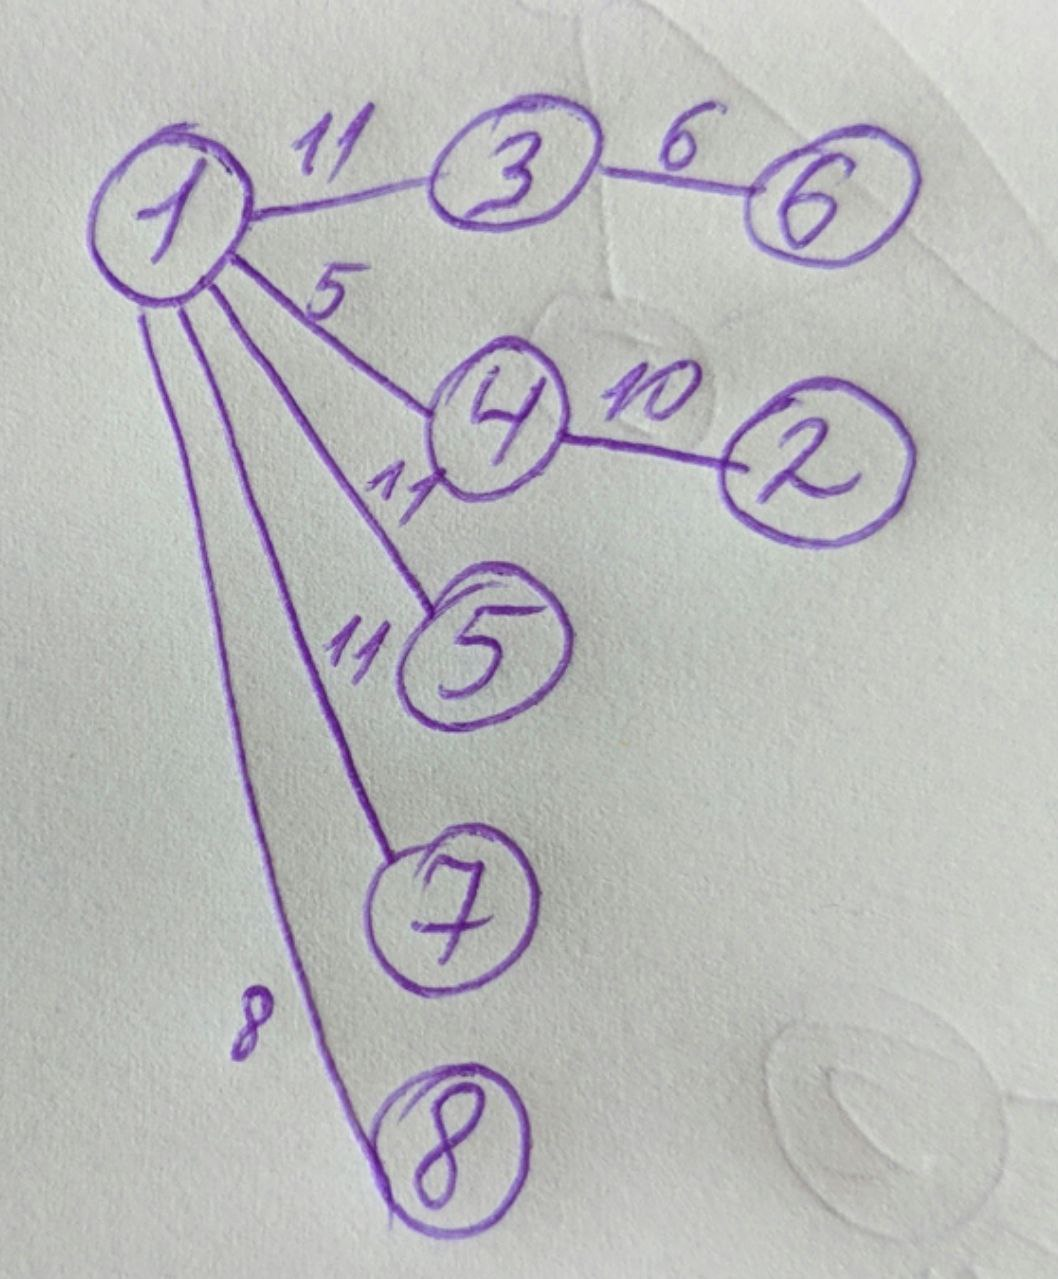 1 11 3 6 6
5
4 10 2
11
5
11
7
8
8